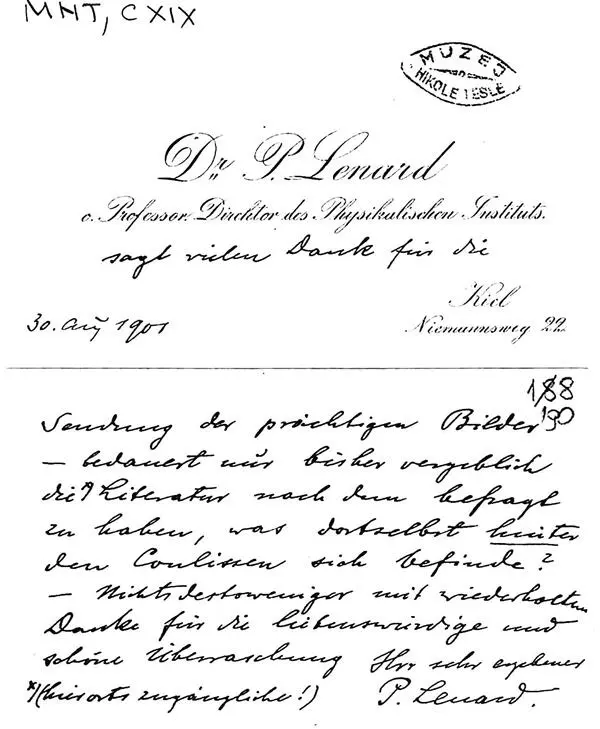 MNT, CXIX
MUZEJ
NIKOLE TESLE
Dr. P. Lenard
o. Professor. Direktor des Physikalischen Instituts.
sagt vielen Dank für die
Kiel
30. Aug 1901
Niemannsweg 22.
188
190
Sendung der prächtigen Bilder
– bedauert nur bisher vergeblich
die *) Literatur nach dem befragt
zu haben, was dortselbst hinter
den Coulissen sich befinde?
– Nichtsdestoweniger mit wiederholtem
Danke für die liebenswürdige und
schöne Überraschung Ihr sehr ergebener
*) (hierorts zugängliche!) P. Lenard.